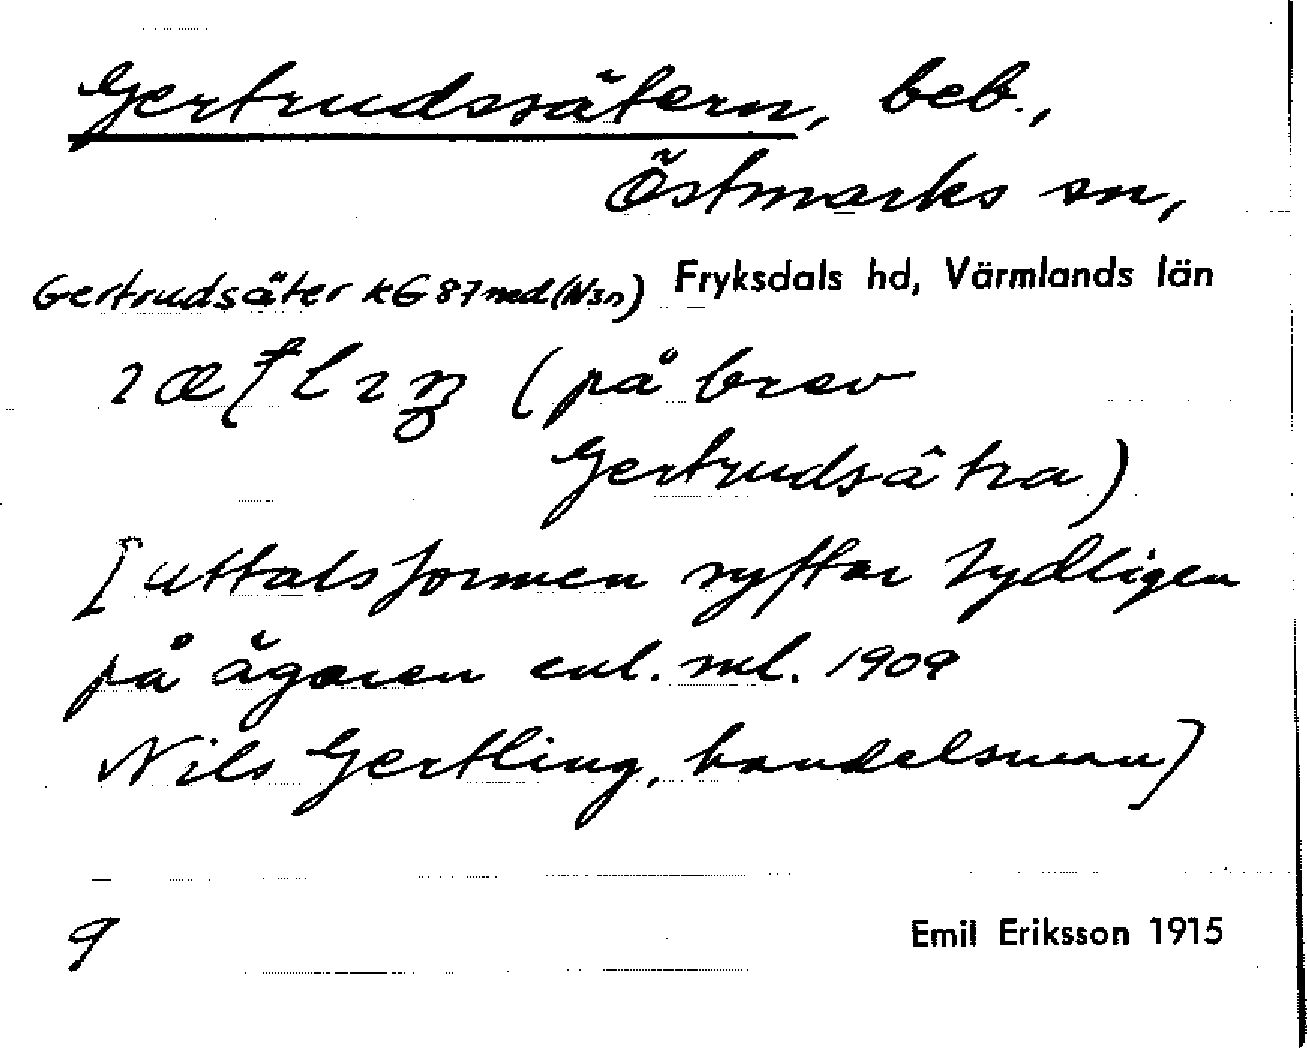 Gertrudssätern, beb.,
Östmarks sn,
Gertrudsäter KG 87 med (N3n) Fryksdals hd, Värmlands län
(på brev
Gertrudsätra)
[uttalsformen syftar tydligen
på ägaren enl. ml. 1909
Nils Gertling, handelsman]
9
Emil Eriksson 1915